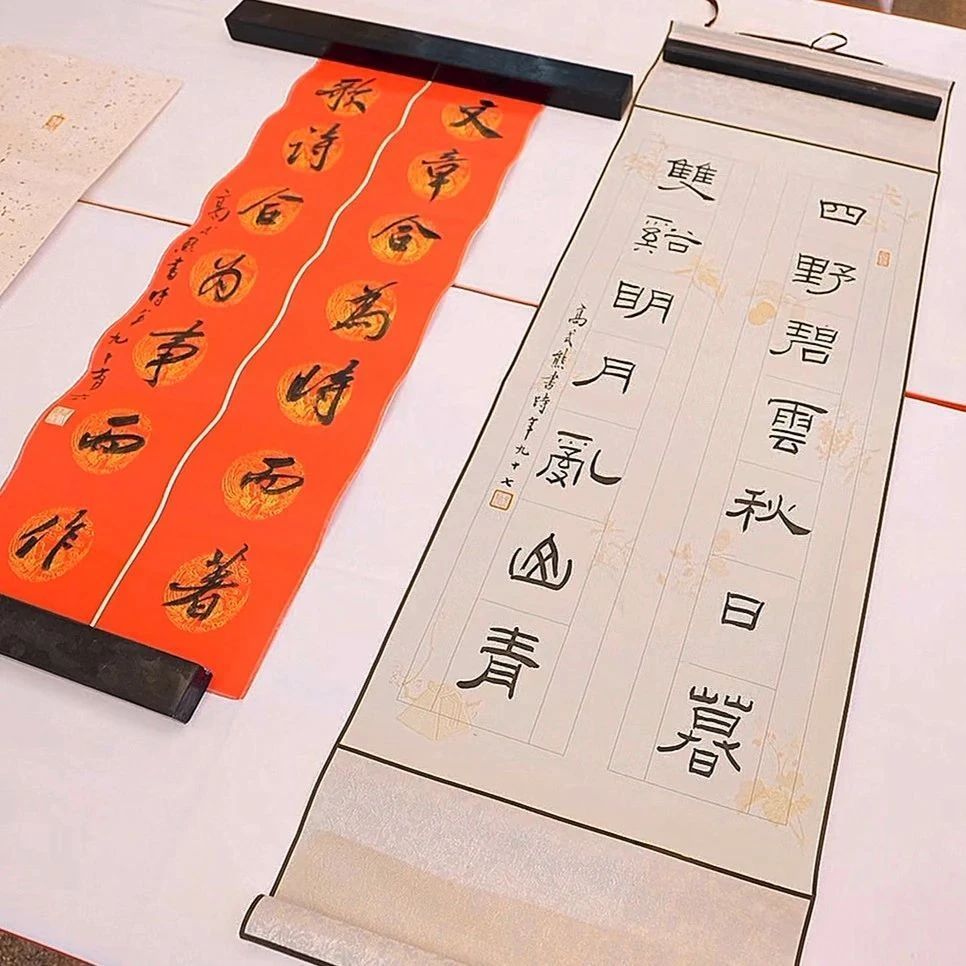 四野碧雲秋日暮
雙谿眀月亂山青
高式熊書時年九十七
文章合為時而著
歌詩合为事而作
高式熊書時年九十有六